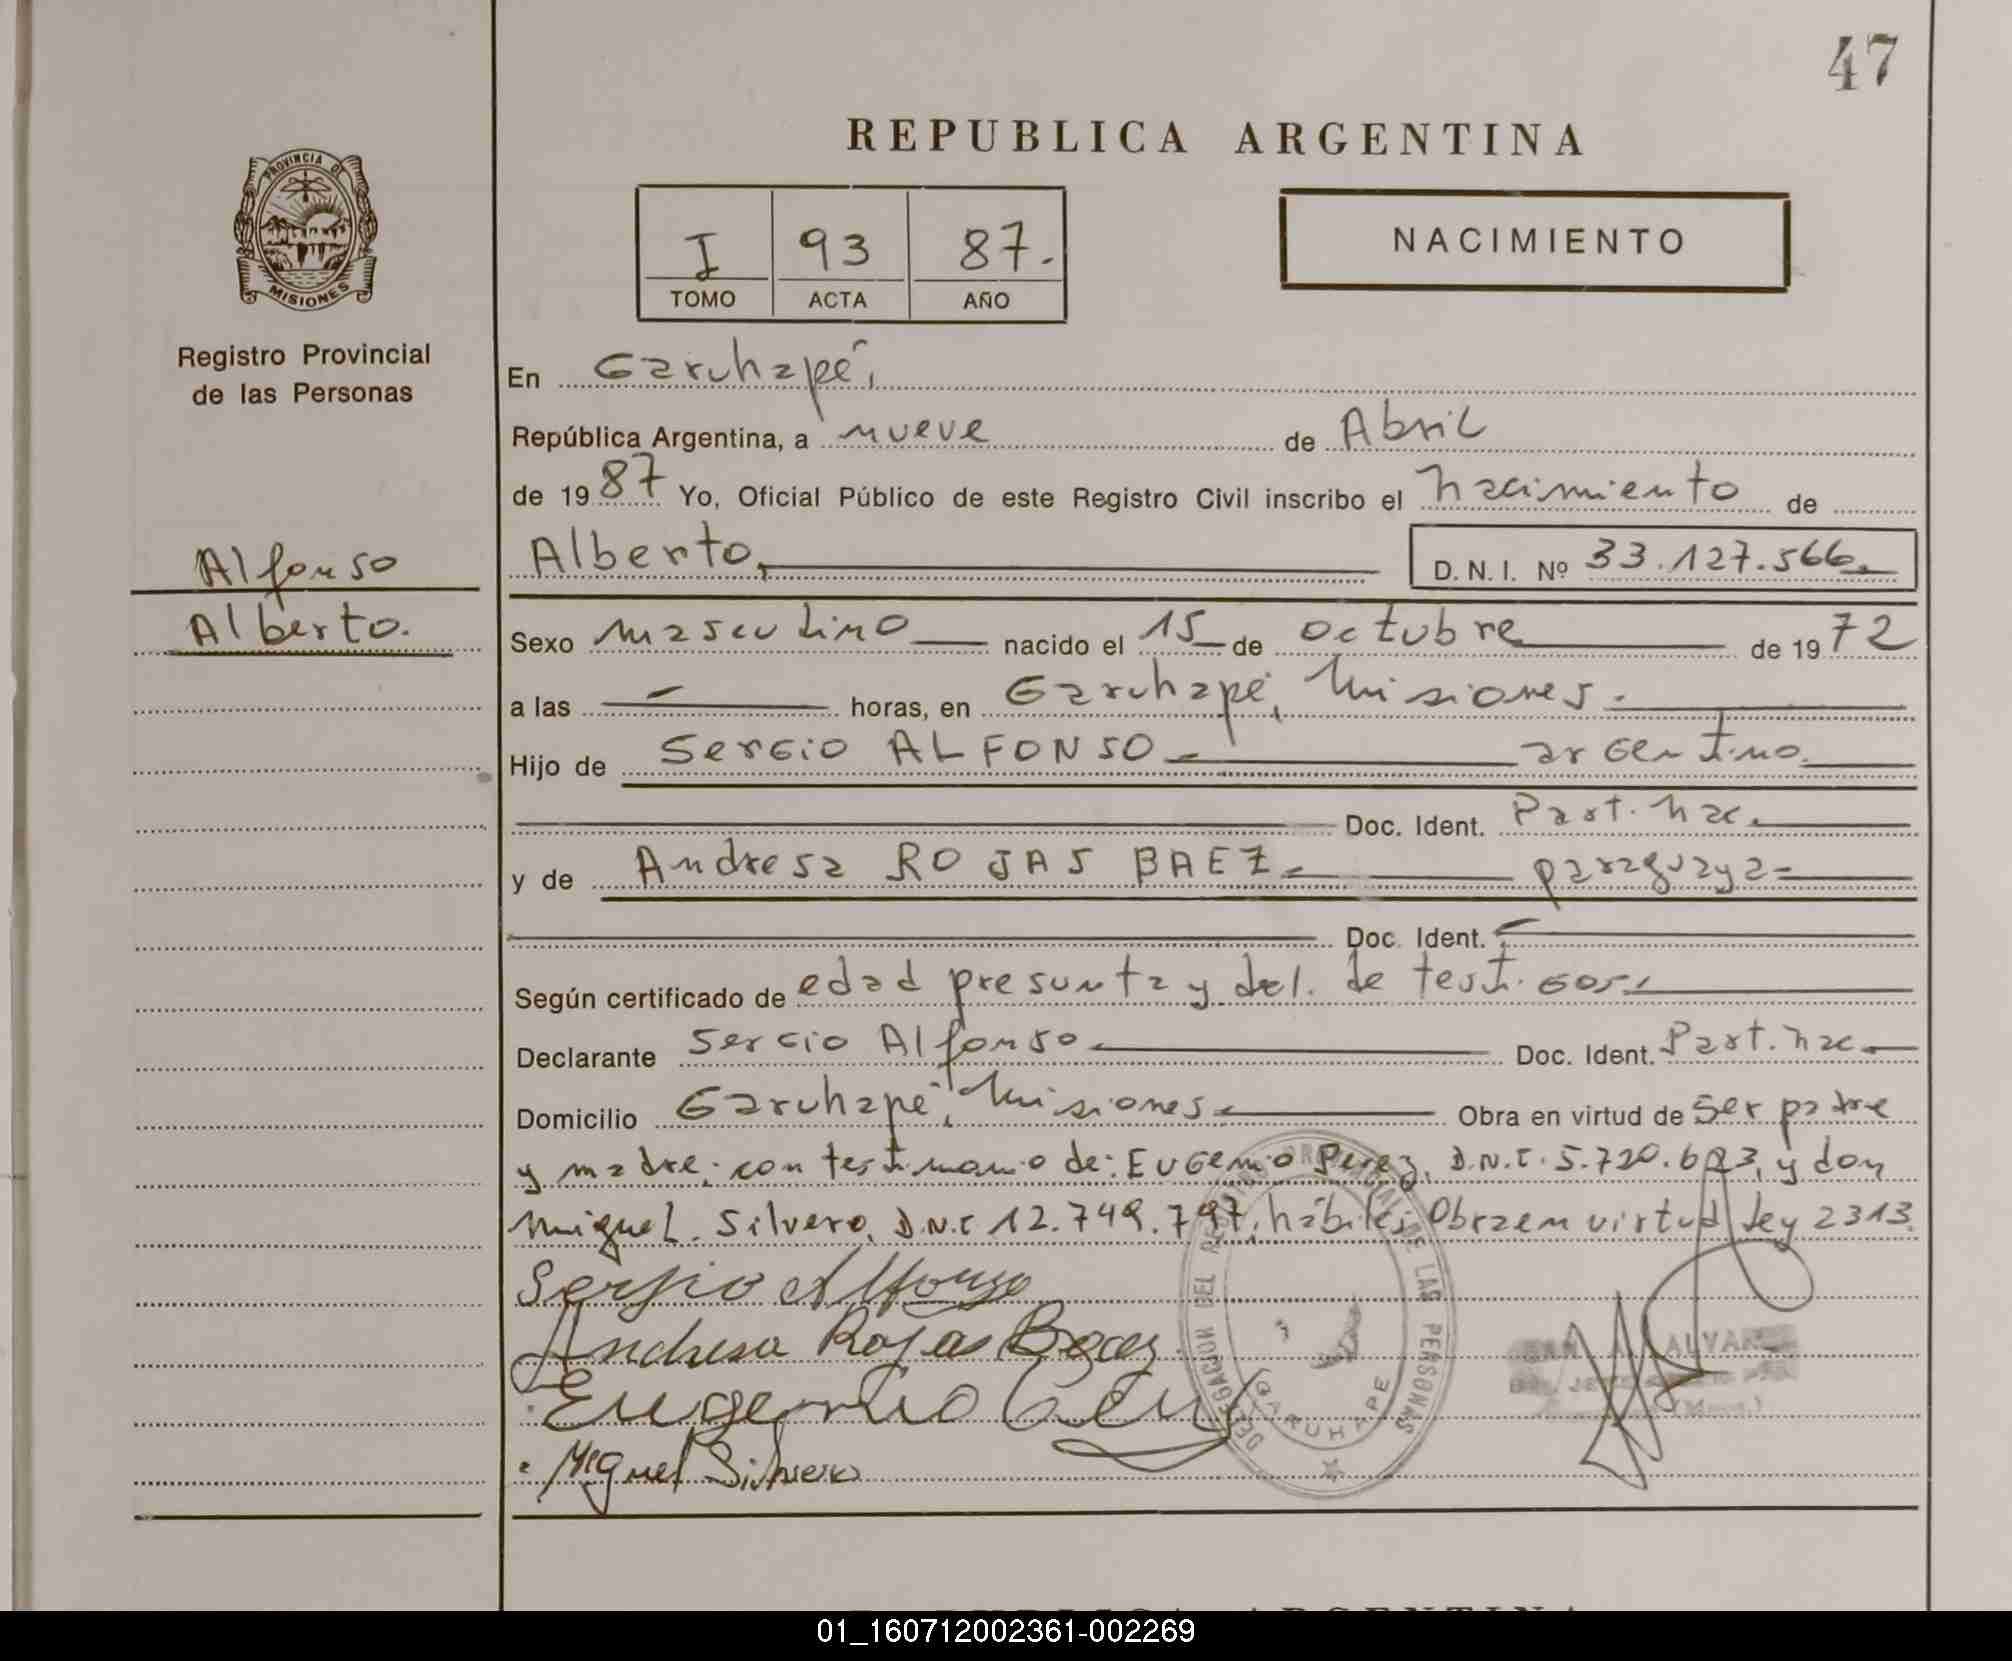 47
REPUBLICA ARGENTINA
I 93 87.
TOMO ACTA AÑO
NACIMIENTO
PROVINCIA DE
MISIONES
Registro Provincial
de las Personas
Alfonso
Alberto.
En Garuhapé,
República Argentina, a nueve de Abril
de 1987 Yo, Oficial Público de este Registro Civil inscribo el nacimiento de
Alberto, D.N.I. Nº 33.127.566
Sexo masculino nacido el 15 de octubre de 1972
a las horas, en Garuhapé, Misiones.
Hijo de Sergio ALFONSO argentino.
Doc. Ident. Part. nac.
y de Andresa ROJAS BAEZ paraguaya
Doc. Ident.
Según certificado de edad presunta y del. de testigos.
Declarante Sergio Alfonso Doc. Ident. Part. nac.
Domicilio Garuhapé, Misiones. Obra en virtud de ser padre
y madre; con testimonio de: Eugenio Perez, D.N.I. 5.720. y don
Miguel Silvero, D.N.I 12.749.797, hábiles, Obra en virtud Ley 2313.
Sergio Alfonso
Andresa Rojas Baez
Eugenio
Miguel Silvero
DELEGACION DEL REGISTRO PROVINCIAL DE LAS PERSONAS
GARUHAPE
ALVAREZ
01_160712002361-002269